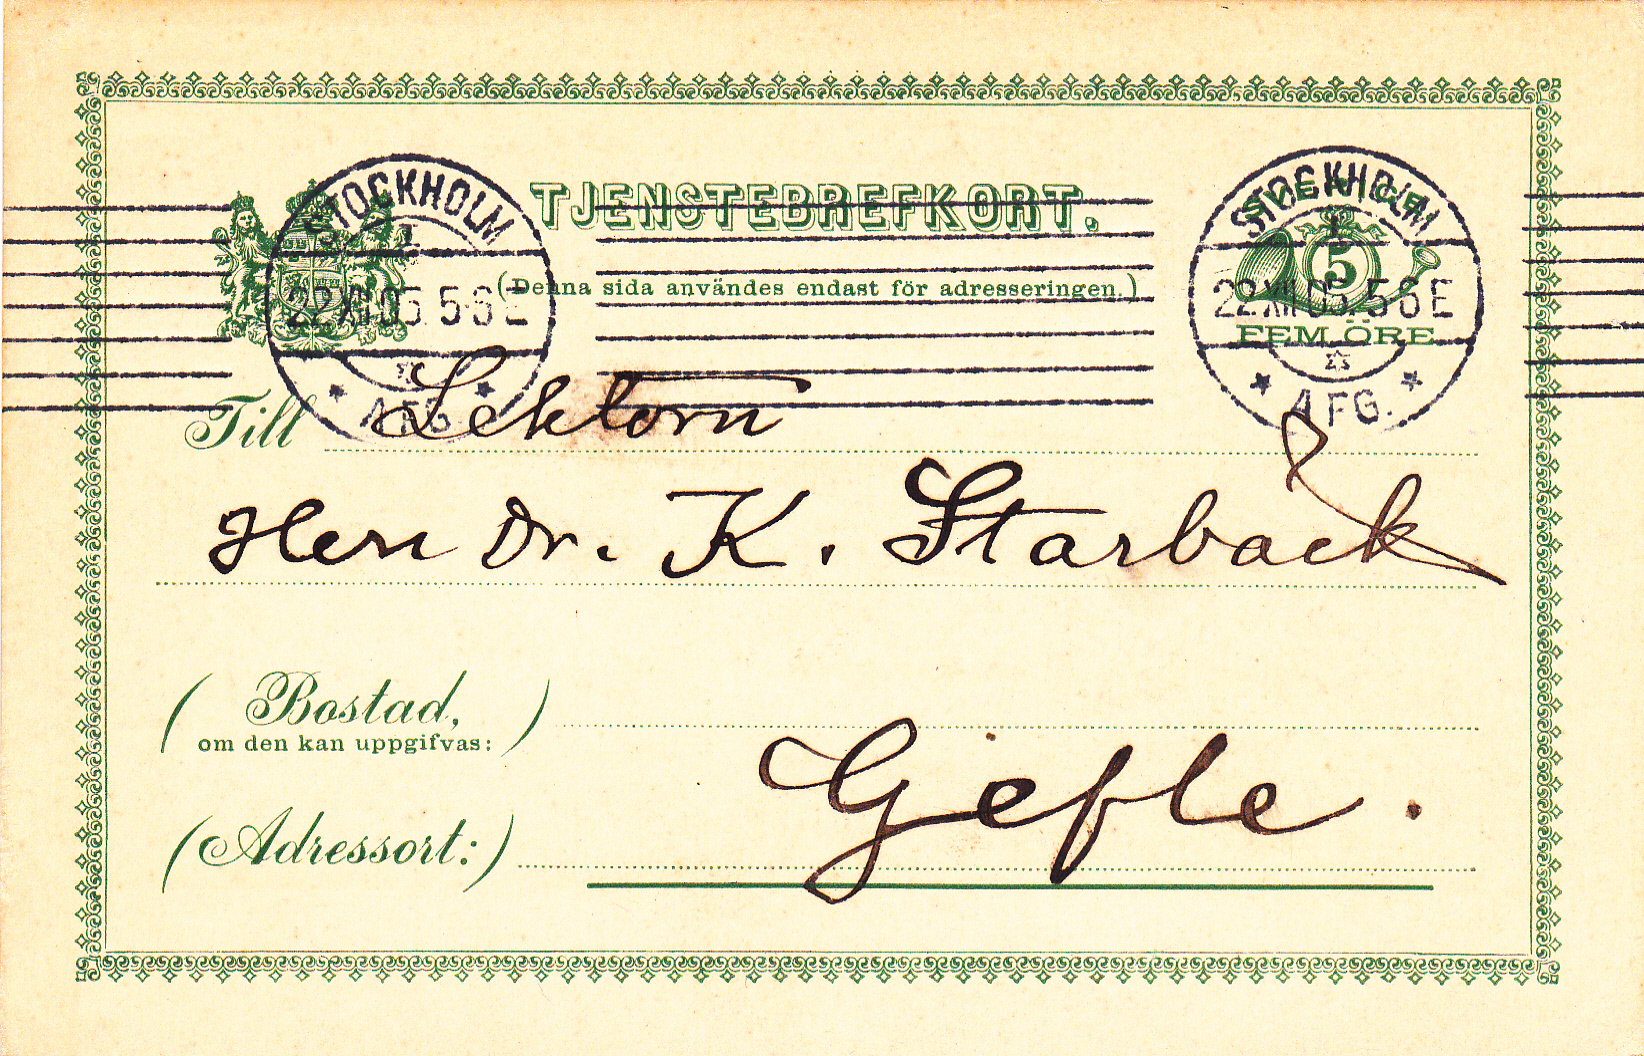 TJENSTEBREFKORT.
(Denna sida användes endast för adresseringen.)
STOCKHOLM
1
22 XII 05 5-6 E
AFG.
STOCKHOLM
1
22 XII 05 5 6 E
AFG.
SVERIGE
5
FEM ÖRE
Till Lektorn
Herr Dr. K. Starbäck
(Bostad,
om den kan uppgifvas:)
(Adressort:) Gefle.